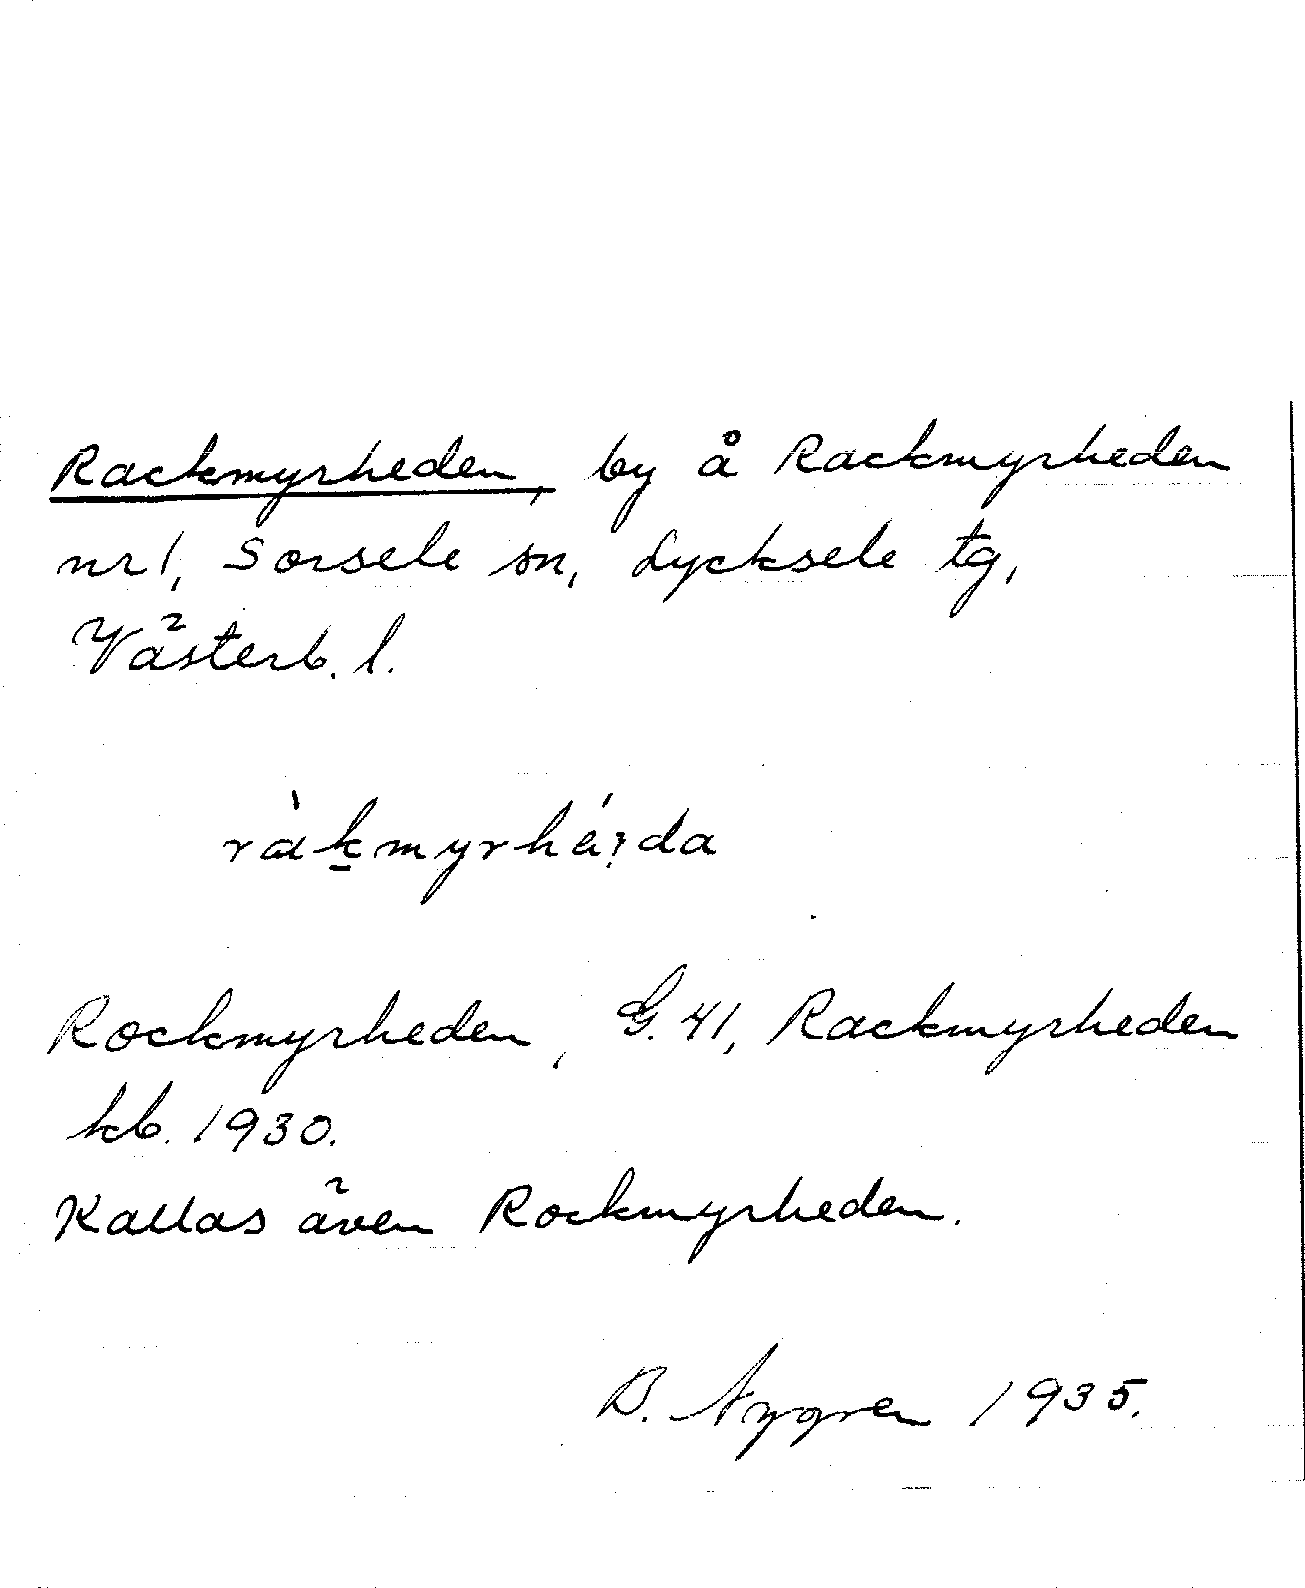 Rackmyrheden, by å Rackmyrheden
nr 1, Sorsele sn, Lycksele tg,
Västerb. l.
ràk̠myrhé̀ꞛda
Rockmyrheden, G. 41, Rackmyrheden
kb. 1930.
Kallas även Rockmyrheden.
B. Nygren 1935.